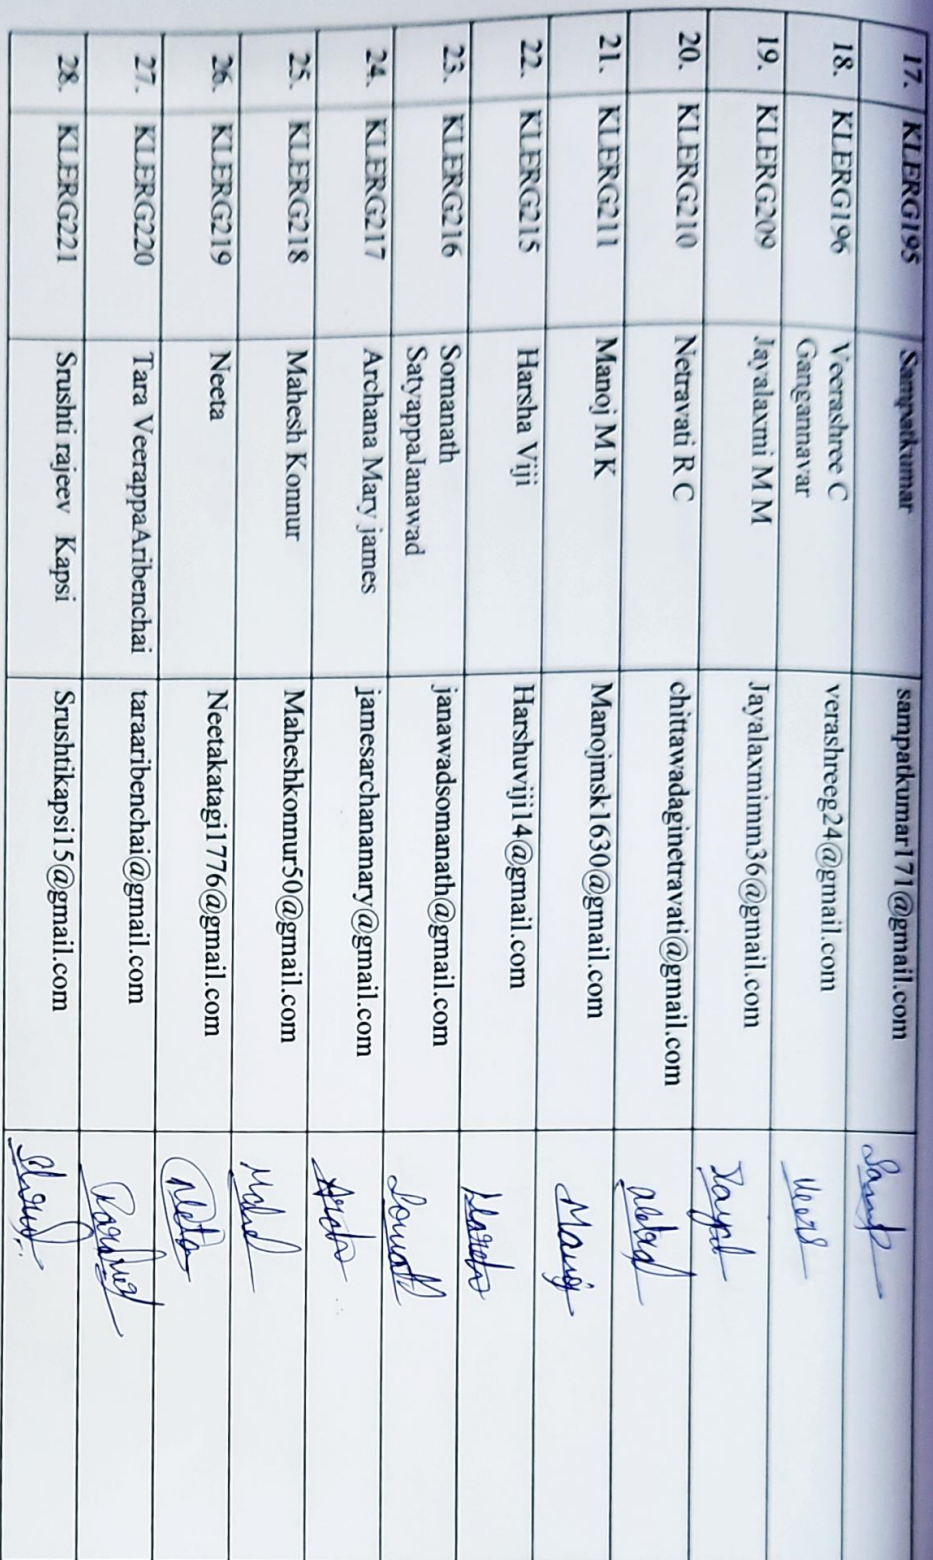 17. KLERG195 Sampatkumar sampatkumar171@gmail.com
18. KLERG196 Veerashree C verashreeg24@gmail.com
Gangannavar
19. KLERG209 Jayalaxmi M M Jayalaxmimm36@gmail.com
20. KLERG210 Netravati R C chittawadaginetravati@gmail.com
21. KLERG211 Manoj M K Manojmsk1630@gmail.com Manoj
22. KLERG215 Harsha Viji Harshuviji14@gmail.com
23. KLERG216 Somanath janawadsomanath@gmail.com
SatyappaJanawad
24. KLERG217 Archana Mary james jamesarchanamary@gmail.com
25. KLERG218 Mahesh Konnur Maheshkonnur50@gmail.com
26. KLERG219 Neeta Neetakatagi1776@gmail.com
27. KLERG220 Tara VeerappaAribenchai taraaribenchai@gmail.com
28. KLERG221 Srushti rajeev Kapsi Srushtikapsi15@gmail.com